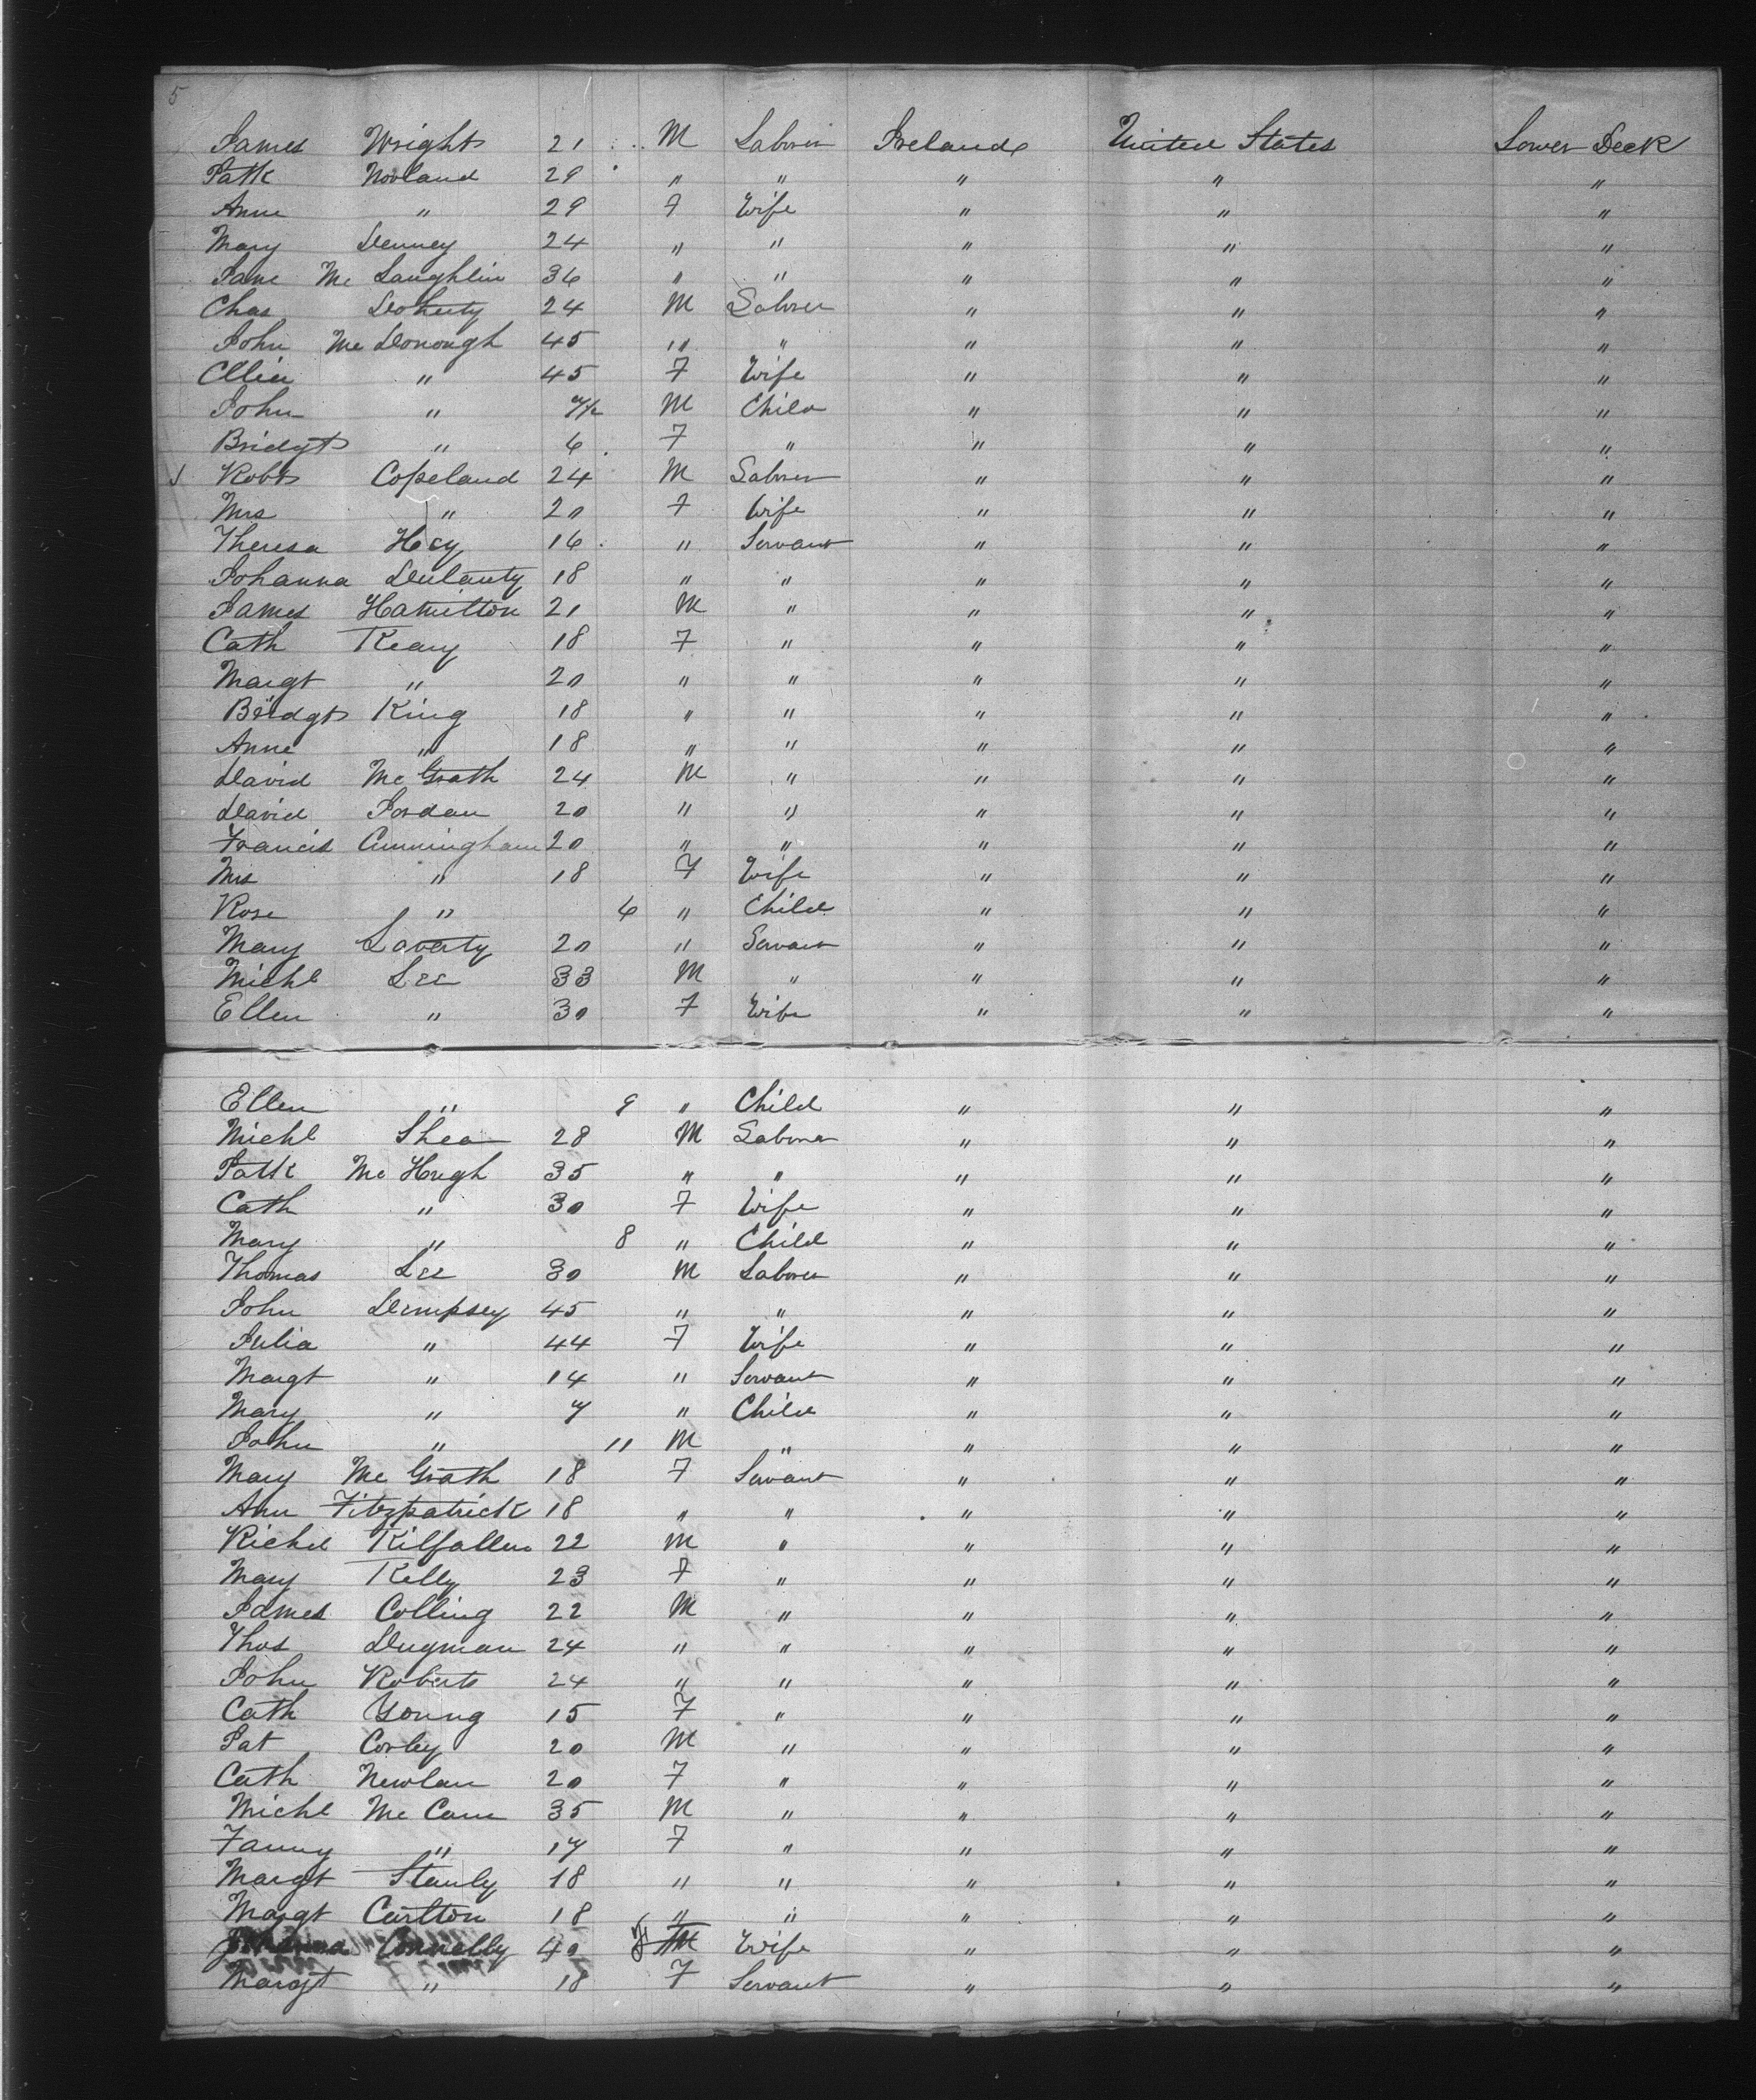 5
James Wright 21 M Laborer Ireland United States Lower Deck
Patk Nowland 29 " " " " "
Anne " 29 F Wife " " "
Mary Denney 24 " " " " "
Jane Mc Laughlin 36 " " " " "
Chas Doherty 24 M Laborer " " "
John Mc Donough 45 " " " " "
" 45 F Wife " " "
John " M Child " " "
Bridgt " 6 F " " " "
Robt Copeland 24 M Laborer " " "
Mrs " 20 F Wife " " "
Theresa Hoy 16 " Servant " " "
Johanna Dulanty 18 " " " " "
James Hamilton 21 M " " " "
Cath Keary 18 F " " " "
Margt " 20 " " " " "
Bridgt King 18 " " " " "
Anne " 18 " " " " "
David Mc Grath 24 M " " " "
David Jordan 20 " " " " "
Francis Cunningham 20 " " " " "
Mrs " 18 F Wife " " "
Rose " 6 " Child " " "
Mary Laverty 20 " Servant " " "
Michl Lee 33 M " " " "
Ellen " 30 F Wife " " "
Ellen " 9 " Child " " "
Michl Shea 28 M Laborer " " "
Patk Mc Hugh 35 " " " " "
Cath " 30 F Wife " " "
Mary " 8 " Child " " "
Thomas Lee 30 M Laborer " " "
John Dempsey 45 " " " " "
Julia " 44 F Wife " " "
Margt " 14 " Servant " " "
Mary " 7 " Child " " "
John " 11 M " " " "
Mary Mc Grath 18 F Servant " " "
Ann Fitzpatrick 18 " " " " "
Richd Kilfallen 22 M " " " "
Mary Kelly 23 F " " " "
James Colling 22 M " " " "
Thos Dugman 24 " " " " "
John Roberts 24 " " " " "
Cath Young 15 F " " " "
Pat Corley 20 M " " " "
Cath Newlan 20 F " " " "
Michl Mc Cann 35 M " " " "
Fanny " 17 F " " " "
Margt Stanly 18 " " " " "
Margt Carlton 18 " " " " "
Johanna Connelly 40 F Wife " " "
Margt " 18 F Servant " " "